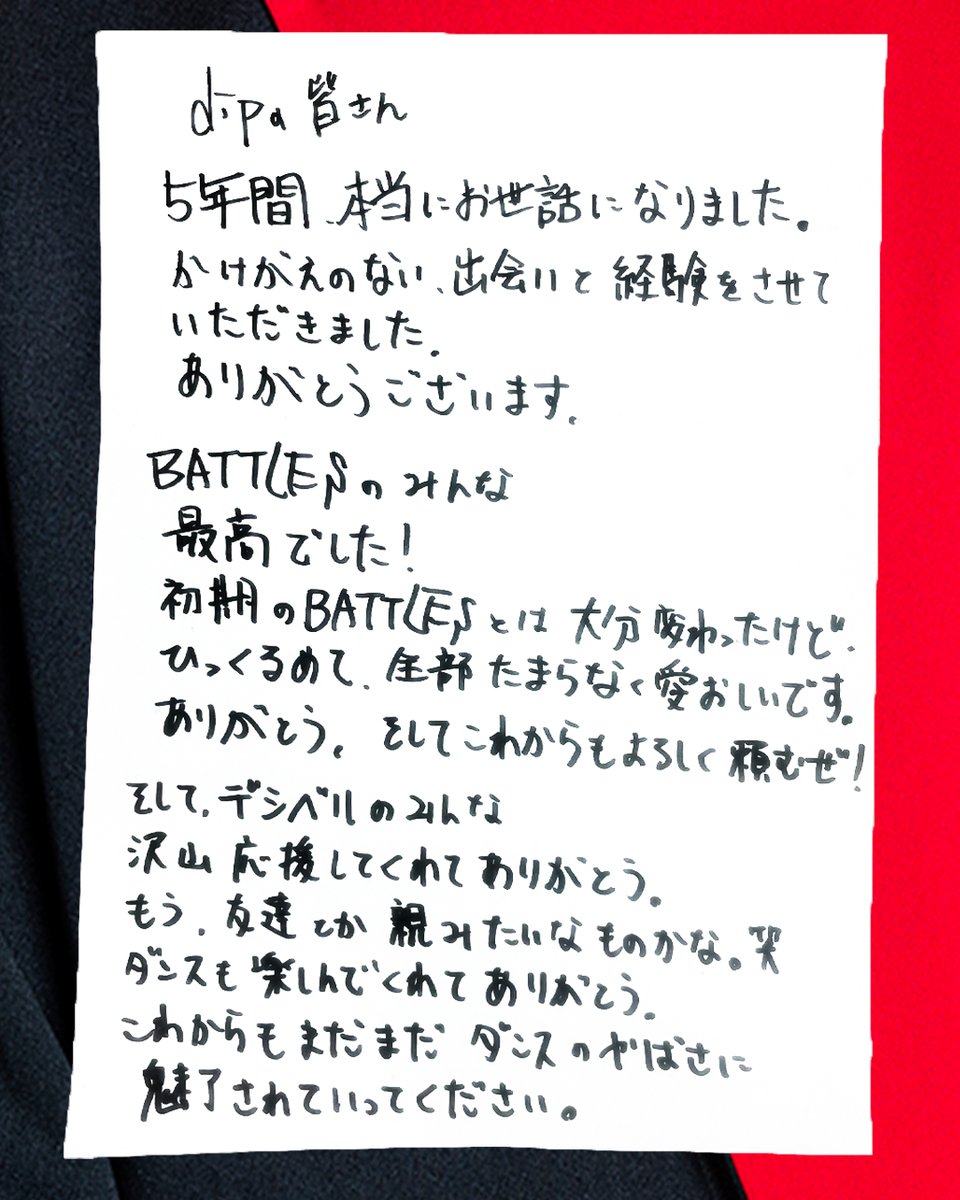 dipの皆さん
5年間、本当にお世話になりました。
かけがえのない、出会いと経験をさせて
いただきました。
ありがとうございます。
BATTLESのみんな
最高でした！
初期のBATTLESとは大分変わったけど、
ひっくるめて、全部たまらなく愛おしいです。
ありがとう。そしてこれからもよろしく頼むぜ！
そして、デシベルのみんな
沢山応援してくれてありがとう。
もう、友達とか親みたいなものかな。笑
ダンスも楽しんでくれてありがとう。
これからもまだまだダンスのやばさに
魅了されていってください。